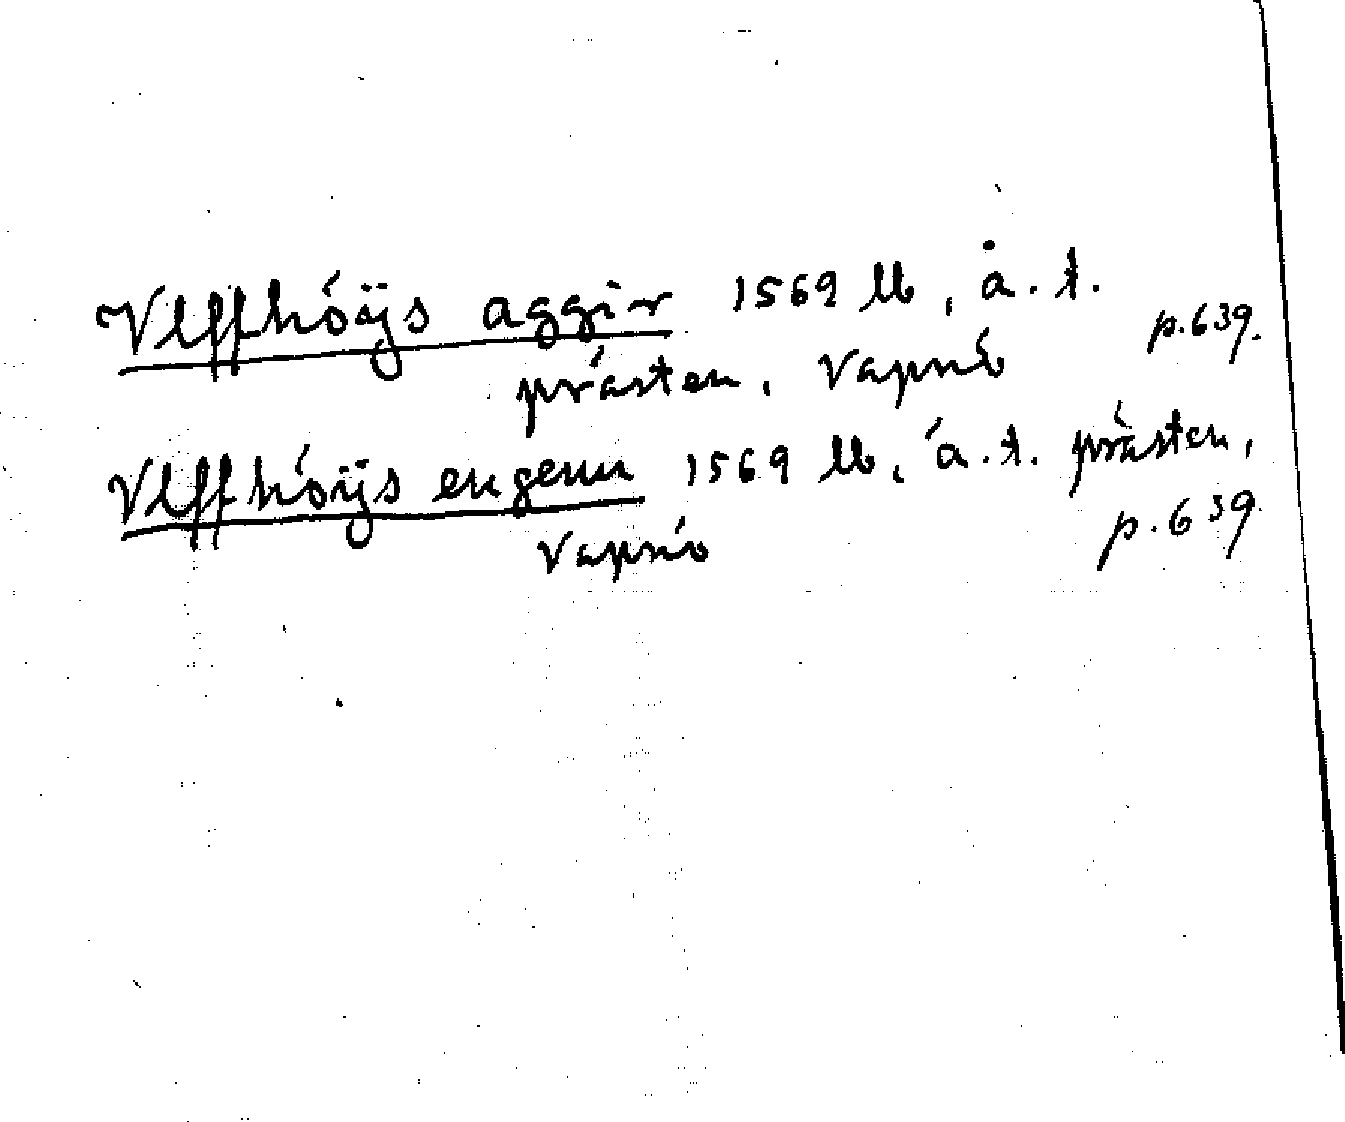 Vlffhöÿs aggir 1569 lb, å. t.
prästen, Vapnö p. 639.
Vlffhöÿs engenn 1569 lb, å. t. prästen,
Vapnö p. 639.